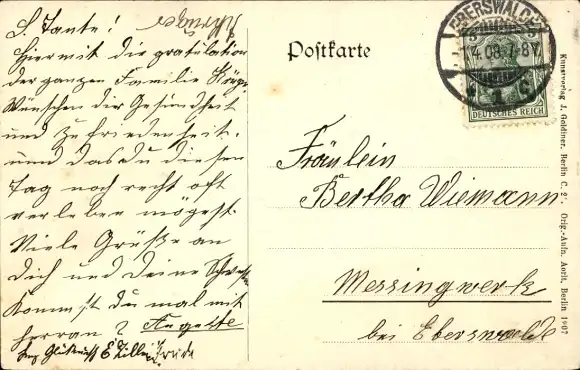 L. Tante!
Hiermit die gratulation
der ganzen Familie
Wünschen dir Gesundheit
und Zufriedenheit.
und das du diesen
Tag noch recht oft
verleben mögest.
Viele Grüße an
dich und deine
Kommst du mal mit
herran? Auguste
Postkarte
EBERSWALDE
4.08.7-8V
1
DEUTSCHES REICH
Fräulein
Bertha Wiemann
Messingwerk
bei Eberswalde
Kunstverlag J. Goldiner, Berlin C. 2. Orig.-Aufn. Autit, Berlin 1907